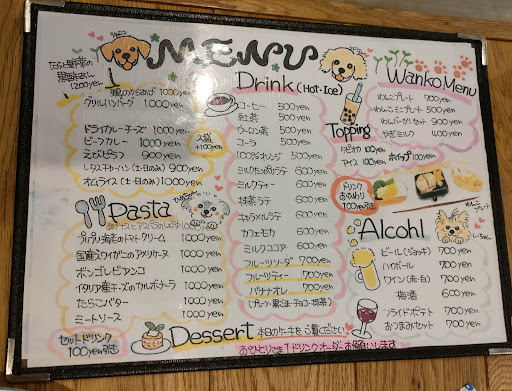 MENU
たらと野菜の
黒酢あん
1200yen
鶏のからあげ 1000yen
グリルハンバーグ 1000yen
ドライカレーチーズ 1000yen
ビーフカレー 1000yen
えびピラフ 900yen
レタスチャーハン(土・日のみ) 900yen
オムライス(土・日のみ) 1000yen
大盛
+100yen
Pasta
プリプリ海老のトマトクリーム 1000yen
国産ズワイガニのアメリケーヌ 1000yen
ボンゴレビアンコ 1000yen
イタリア産チーズのカルボナーラ 1000yen
たらこバター 1000yen
ミートソース 1000yen
セットドリンク
100yen引き
Drink (Hot・Ice)
コーヒー 500yen
紅茶 500yen
ウーロン茶 500yen
コーラ 500yen
100%オレンジ 500yen
ミルクたっぷりラテ 600yen
ミルクティー 600yen
抹茶ラテ 600yen
キャラメルラテ 600yen
カフェモカ 600yen
ミルクココア 600yen
フルーツソーダ 700yen
フルーツティー 700yen
バナナオレ 700yen
(プレーン・黒ごま・チョコ・抹茶)
Topping
タピオカ 100yen
アイス 100yen ホイップ 100yen
ドリンク
おかわり
100yen引き
Wanko Menu
わんこプレート 700yen
わんこミニプレート 500yen
わんバーガーセット 900yen
やぎミルク 400yen
Alcohl
ビール(ジョッキ) 700yen
ハイボール 700yen
ワイン(赤・白) 700yen
梅酒 600yen
フライドポテト 700yen
おつまみセット 700yen
Dessert 本日のケーキをご覧ください
おひとりさま1ドリンクオーダーお願いします